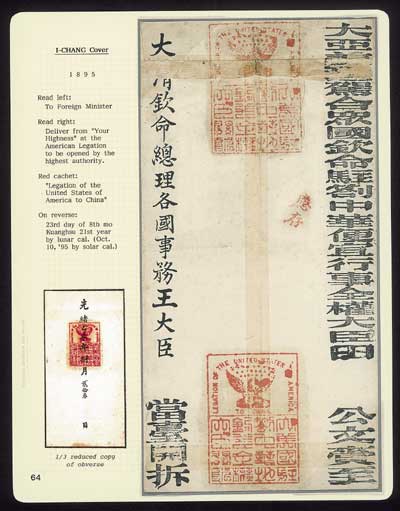 I-CHANG Cover
1895
Read left:
To Foreign Minister
Read right:
Deliver from "Your
Highness" at the
American Legation
to be opened by the
highest authority.
Red cachet:
"Legation of the
United States of
America to China"
On reverse:
23rd day of 8th mo
Kuanghsu 21st year
by lunar cal. (Oct.
10, '95 by solar cal.)
光緒
月
日
1/3 reduced copy
of obverse
64
大
清欽命總理各國事務王大臣
當臺開拆
LEGATION OF THE UNITED STATES
AMERICA
大亞美理駕合眾國欽命駐劄中華便宜行事全權大臣田
公文